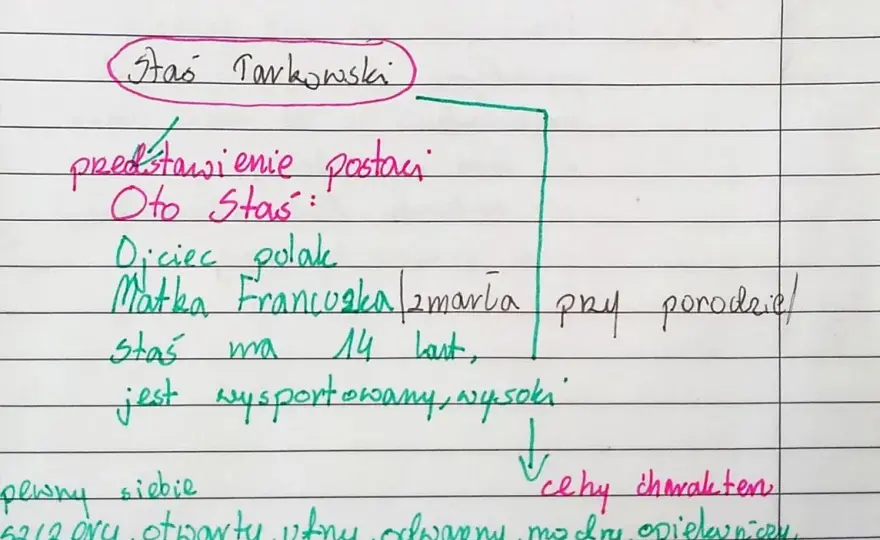 Staś Tarkowski
przedstawienie postaci
Oto Staś:
Ojciec polak
Matka Francuzka /zmarła przy porodzie/
Staś ma 14 lat,
jest wysportowany, wysoki
cehy charakteru
pewny siebie
otwarty, ufny, odważny, mądry, opiekuńczy,